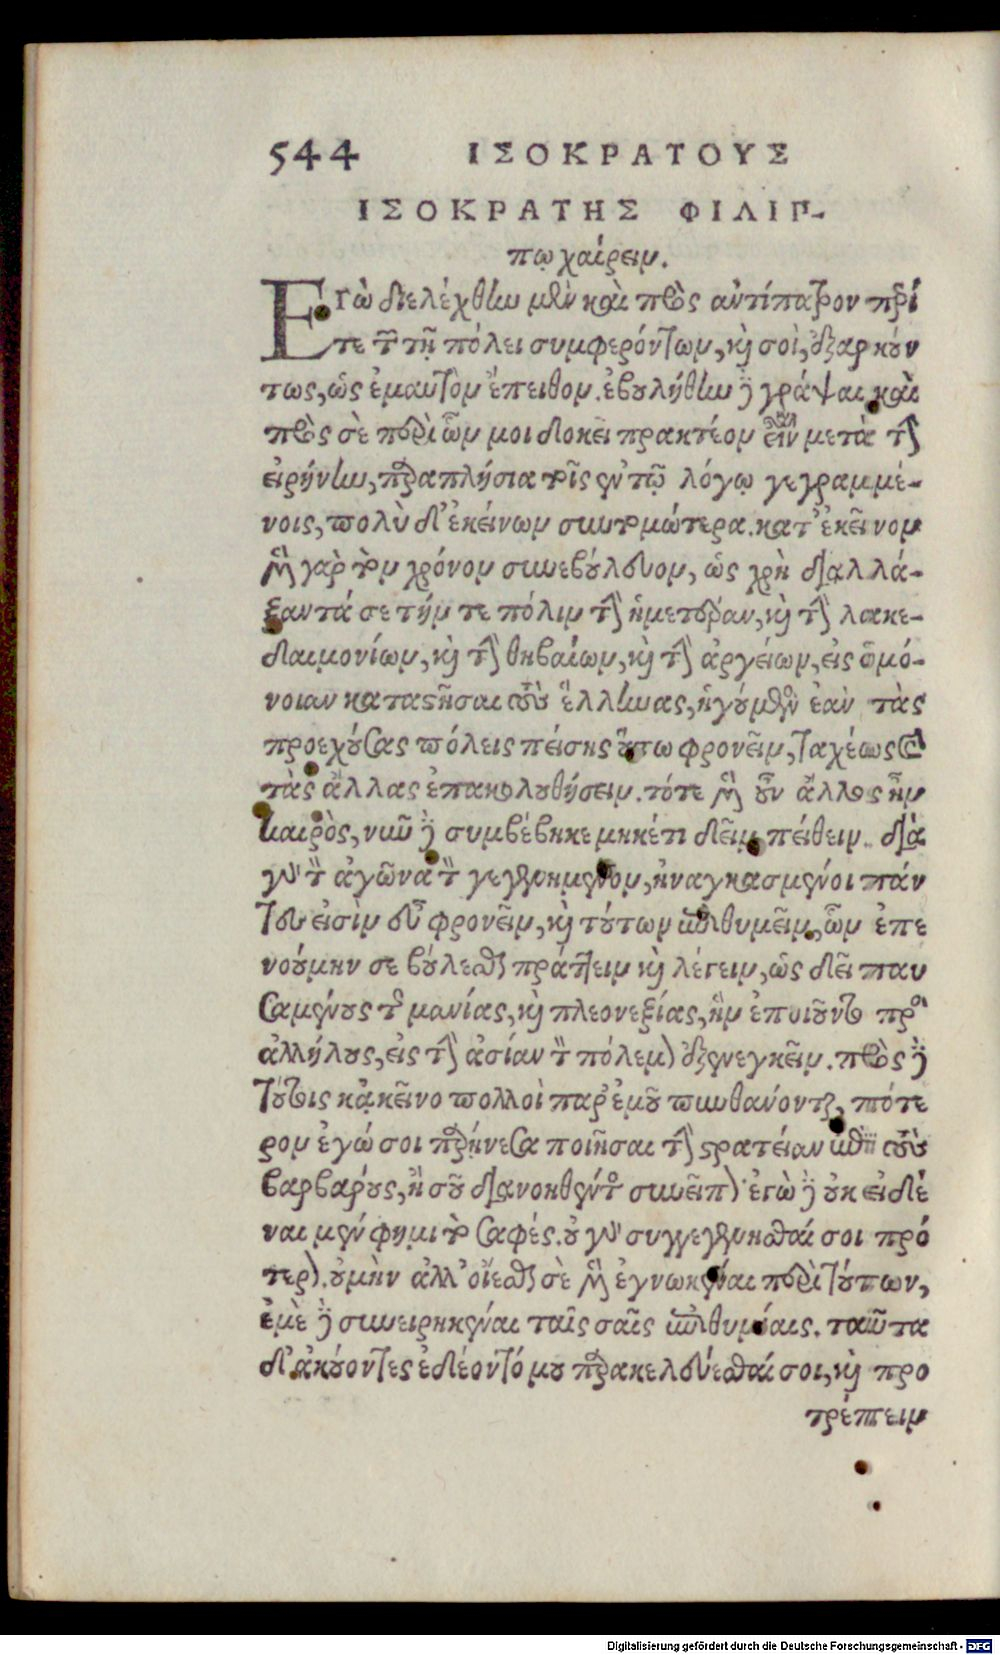 544 ΙΣΟΚΡΑΤΟΥΣ
ΙΣΟΚΡΑΤΗΣ ΦΙΛΙΠ-
πῳ χαίρειν.
Εγὼ διελέχθην μὲν καὶ πρὸς ἀντίπατρον περί
τε τῶν τῇ πόλει συμφερόντων, καὶ σοὶ, ἐξαρκούν
τως, ὡς ἐμαυτὸν ἔπειθον. ἐβουλήθην δὲ γράψαι καὶ
πρὸς σὲ περὶ ὧν μοι δοκεῖ πρακτέον εἶναι μετὰ τὴν
εἰρήνην, παραπλήσια τοῖς ἐν τῷ λόγῳ γεγραμμέ-
νοις, πολὺ δ' ἐκείνων συντομώτερα. κατ' ἐκεῖνον
μὲν γὰρ τὸν χρόνον συνεβούλευον, ὡς χρὴ διαλλά-
ξαντά σε τήν τε πόλιν τὴν ἡμετέραν, καὶ τὴν λακε-
δαιμονίων, καὶ τὴν θηβαίων, καὶ τὴν ἀργείων, εἰς ὁμό-
νοιαν καταστῆσαι τοὺς ἕλληνας, ἡγούμενος ἐὰν τὰς
προεχούσας πόλεις πείσης οὕτω φρονεῖν, ταχέως καὶ
τὰς ἄλλας ἐπακολουθήσειν. τότε μὲν οὖν ἄλλος ἦν
καιρὸς, νῦν δὲ συμβέβηκε μηκέτι δεῖν πείθειν. διὰ
γὰρ τὸν ἀγῶνα τὸν γεγενημένον, ἠναγκασμένοι πάν
τες εἰσὶν εὖ φρονεῖν, καὶ τούτων ἐπιθυμεῖν, ὧν ἐπε
νούμην σε βούλεσθαι πράττειν καὶ λέγειν, ὡς δεῖ παυ
σαμένους τῆς μανίας, καὶ πλεονεξίας, ἣν ἐποιοῦντο πρὸς
ἀλλήλους, εἰς τὴν ἀσίαν τὸν πόλεμον ἐξενεγκεῖν. πρὸς δὲ
τούτοις κἀκεῖνο πολλοὶ παρ' ἐμοῦ πυνθάνονται, πότε
ρον ἐγώ σοι παρῄνεσα ποιῆσαι τὴν στρατείαν ἐπὶ τοὺς
βαρβάρους, ἢ σοῦ διανοηθέντος συνεῖπον. ἐγὼ δὲ οὐκ εἰδέ
ναι μέν φημι τὸ σαφές. οὐ γὰρ συγγεγενῆσθαί σοι πρό
τερον. οὐ μὴν ἀλλ' οἴεσθαι σὲ μὲν ἐγνωκέναι περὶ τούτων,
ἐμὲ δὲ συνειρηκέναι ταῖς σαῖς ἐπιθυμίαις. ταῦτα
δ' ἀκούοντες ἐδέοντό μου παρακελεύεσθαί σοι, καὶ προ
τρέπειν
Digitalisierung gefördert durch die Deutsche Forschungsgemeinschaft - DFG